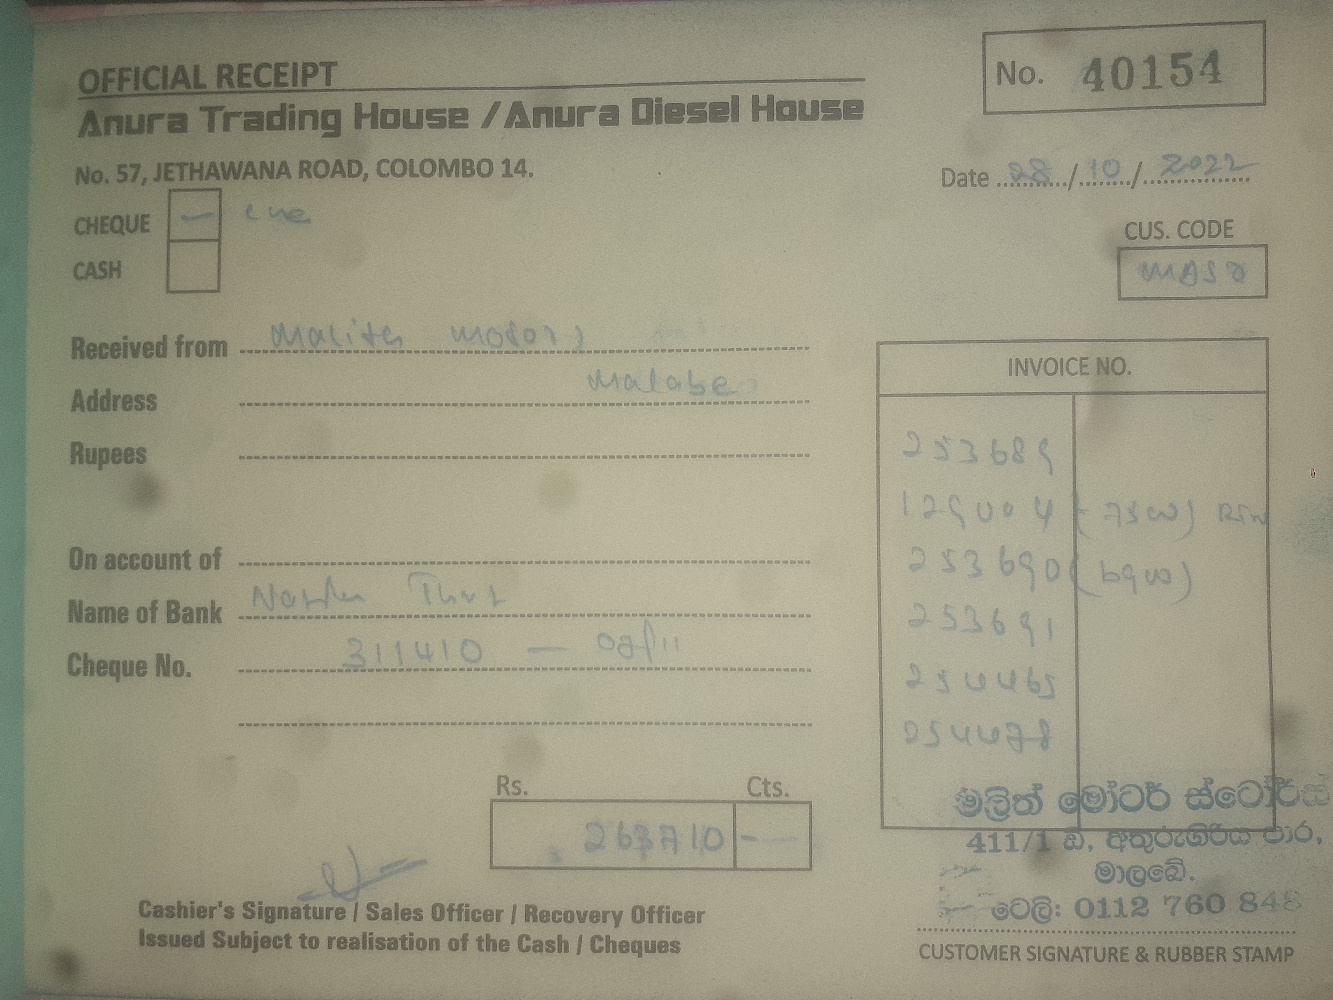 OFFICIAL RECEIPT
No. 40154
Anura Trading House / Anura Diesel House
No. 57, JETHAWANA ROAD, COLOMBO 14.
Date 28/10/2022
CHEQUE –
CASH
CUS. CODE
Received from Malith Motors
Address Malabe
Rupees
On account of
Name of Bank
Cheque No. 311410 – 08/11
INVOICE NO.
253689
129004
253690
253691
254465
254478
Rs. Cts.
263710 –
Cashier's Signature / Sales Officer / Recovery Officer
Issued Subject to realisation of the Cash / Cheques
මලිත් මෝටර් ස්ටෝර්ස්
411/1 ඩී, අතුරුගිරිය පාර,
මාලබේ.
ටෙලි: 0112 760 848
CUSTOMER SIGNATURE & RUBBER STAMP